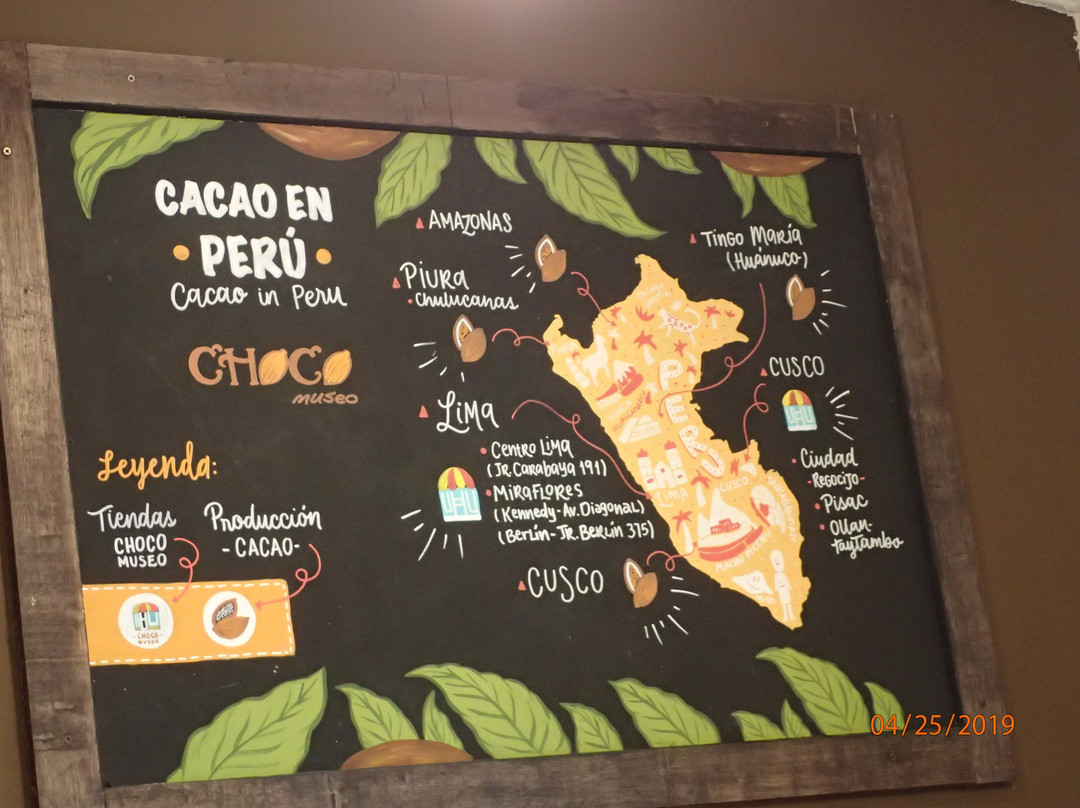 CACAO EN
PERÚ
Cacao in Peru
CHOCO
museo
Leyenda:
Tiendas
CHOCO
MUSEO
Producción
-CACAO-
CHOCO
MUSEO
AMAZONAS
PIURA
Chulucanas
LIMA
Centro Lima
(JR. Carabaya 191)
MIRAFLORES
(Kennedy-Av. Diagonal)
(Berlín-JR. Berlín 375)
CUSCO
TINGO MARÍA
(Huánuco)
CUSCO
Ciudad
-Regocijo-
Pisac
Ollan-
taytambo
PERÚ
LIMA
CUSCO
MACHU PICCHU
04/25/2019